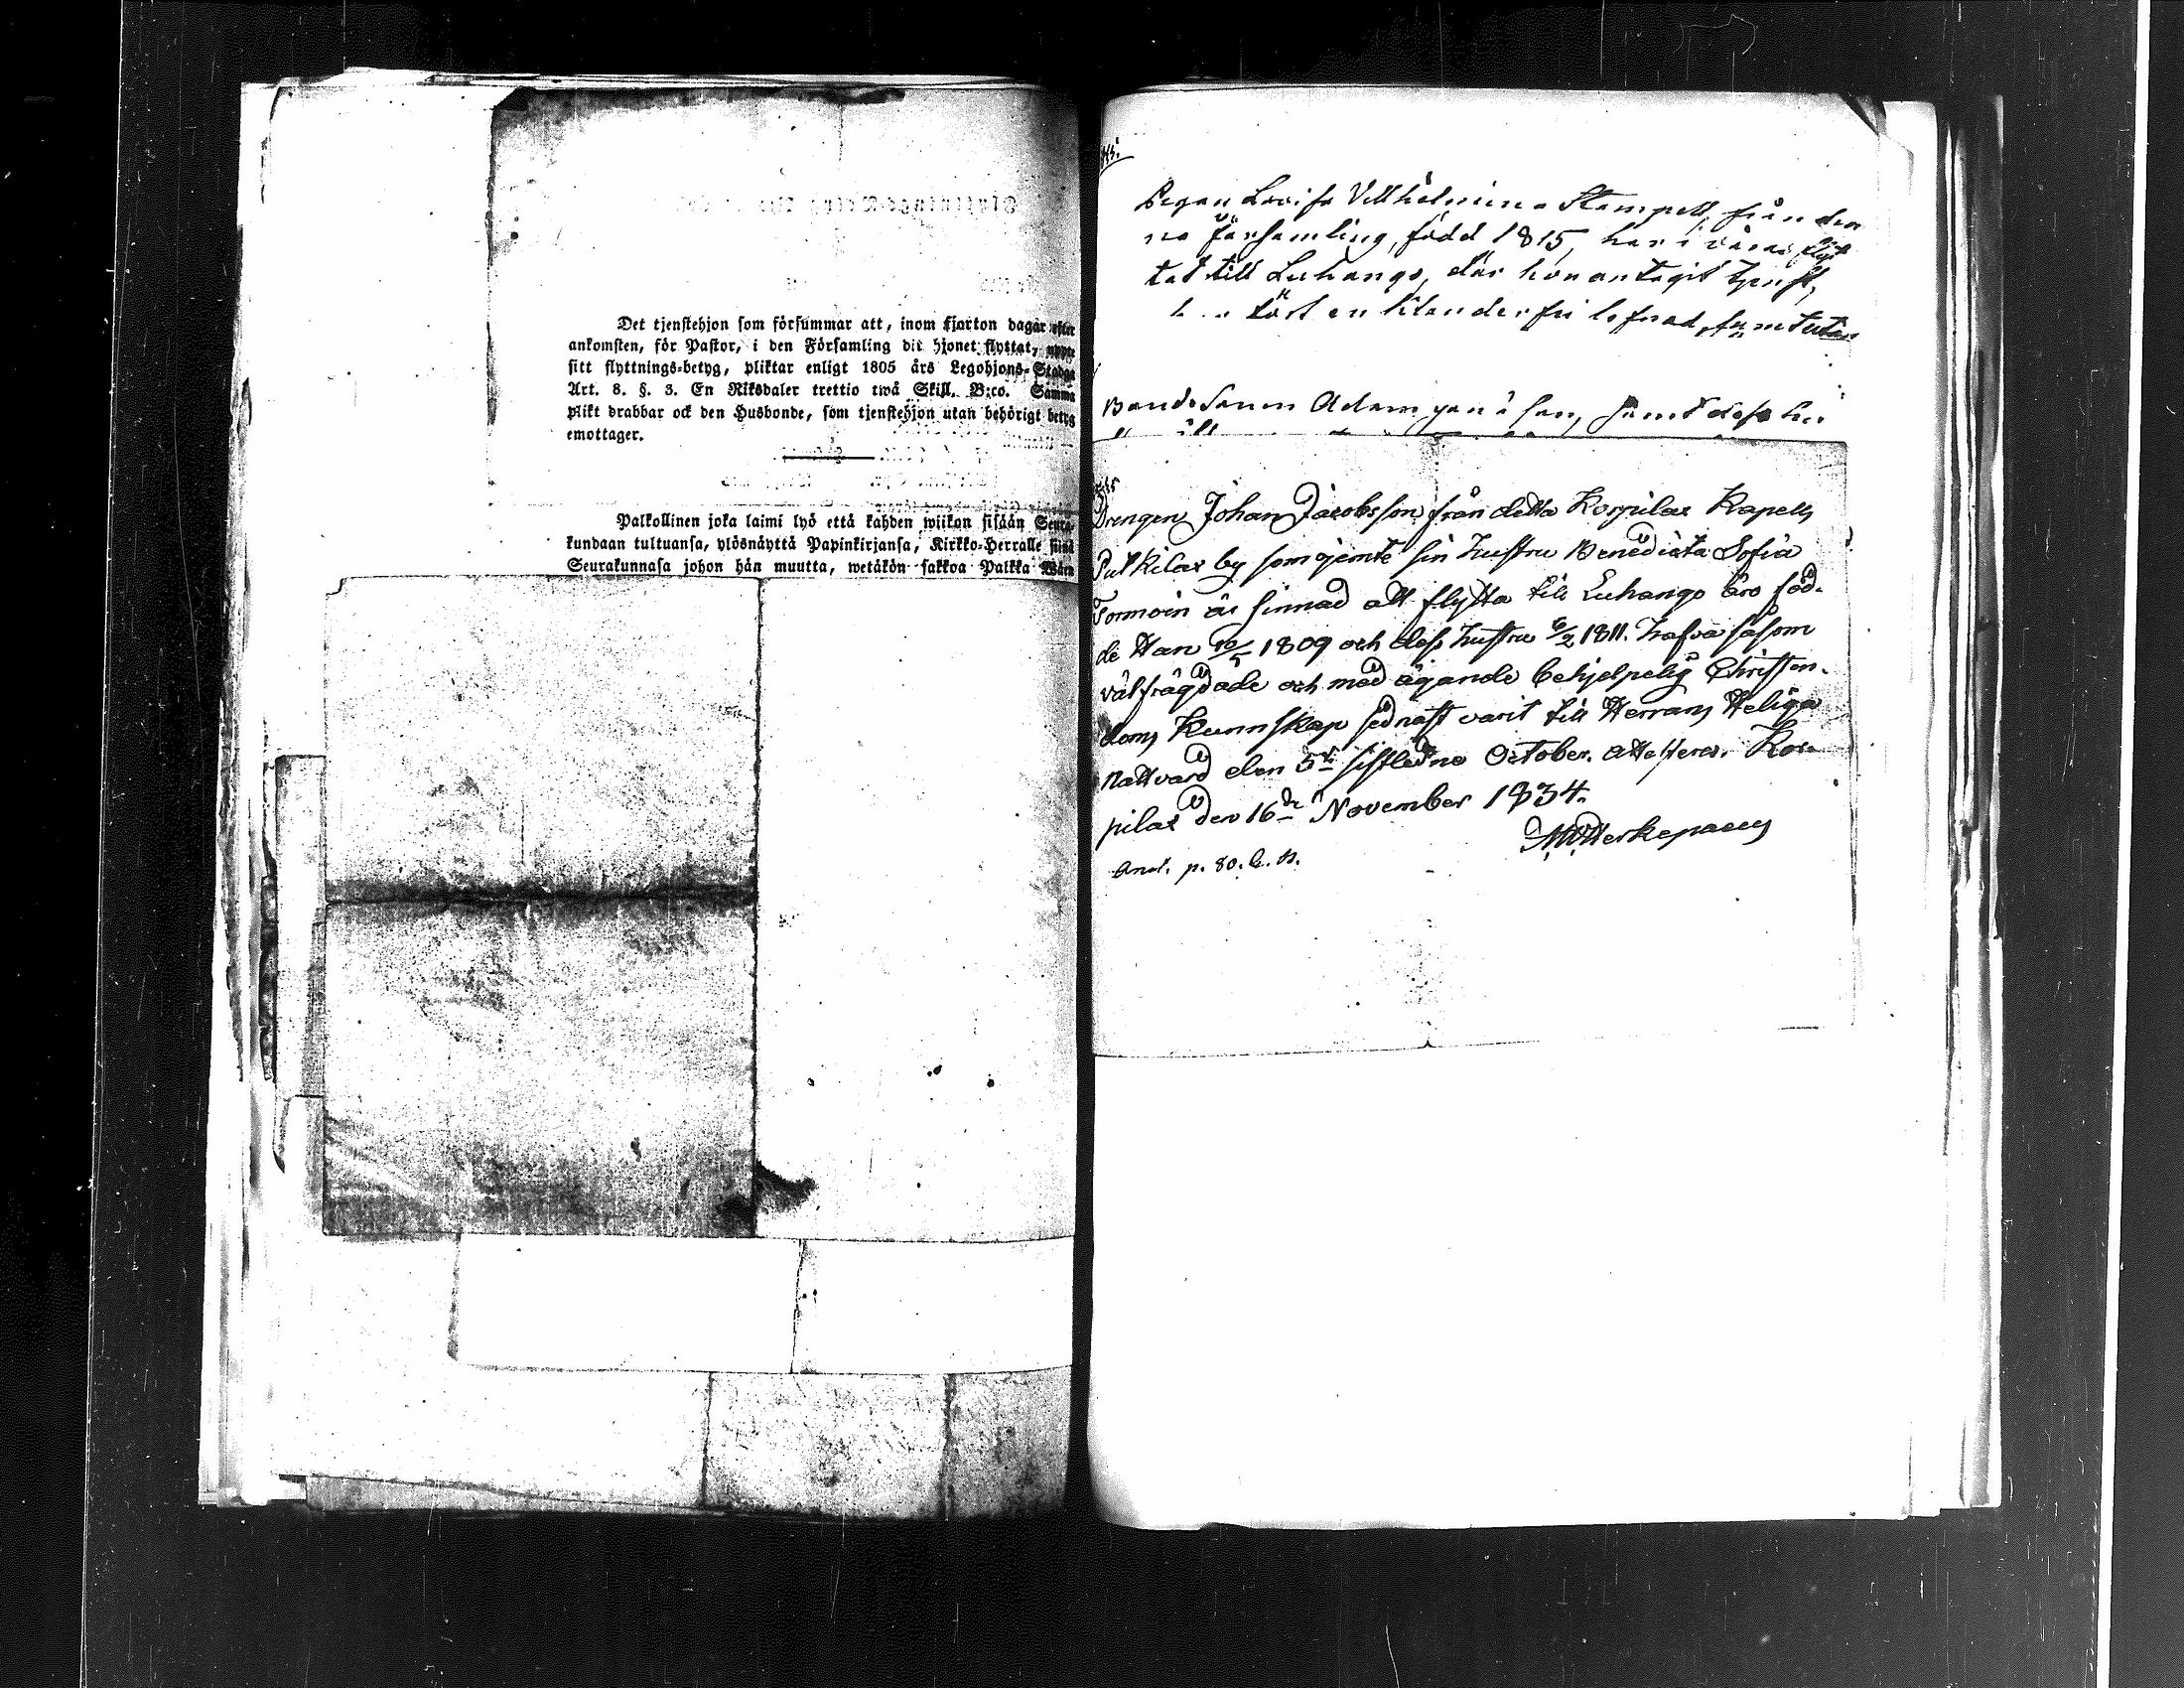 Det tjenstehjon som försummar att, inom fjorton dagar efter
ankomsten, för Pastor, i den Församling dit hjonet flyttat, uppte
sitt flyttnings-betyg, pliktar enligt 1805 års Legohjons-Stadga
Art. 8. §. 3. En Riksdaler trettio twå Skill. B:co. Samma
plikt drabbar ock den Husbonde, som tjenstehjon utan behörigt betyg
emottager.
Palkollinen joka laimi lyö että kahden wiikon sisään Seura-
kundaan tultuansa, ylösnäyttä Papinkirjansa, Kirkko-Herralle siinä
Seurakunnasa johon hän muutta, wetäkön sakkoa Palkka Wäen
Pigan Lovisa Vilhelmina Stampell, från den
na församling, född 1815, har i våras flyt
tat till Luhango, där hon antagit tjenst,
fört en klanderfri lefnad, samt utan
Adam son, samt dess hu
Drengen Johan Jacobsson från detta Korpilax Kapells
Putkilax by som jemte sin hustru Benedicta Sofia
Tormoin är sinnad att flytta till Luhango äro föd-
de Han 10/5 1809 och dess hustru 6/2 1811. hafva såsom
välfrägdade och med ägande behjelpelig Christen-
doms Kunnskap sednast varit till Herrans Heliga
Nattvard den 5te sistledne October. attesteras. Kor-
pilax den 16de November 1834.
Anot. p. 80. C. B.